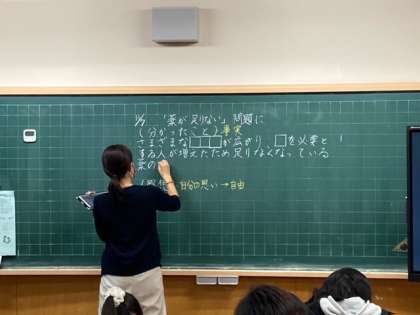 11/9 「薬が足りない」問題に
(分かったこと) 事実
さまざまな□□□が広がり、□を必要と
する人が増えたため足りなくなっている
薬の
自分の思い→自由